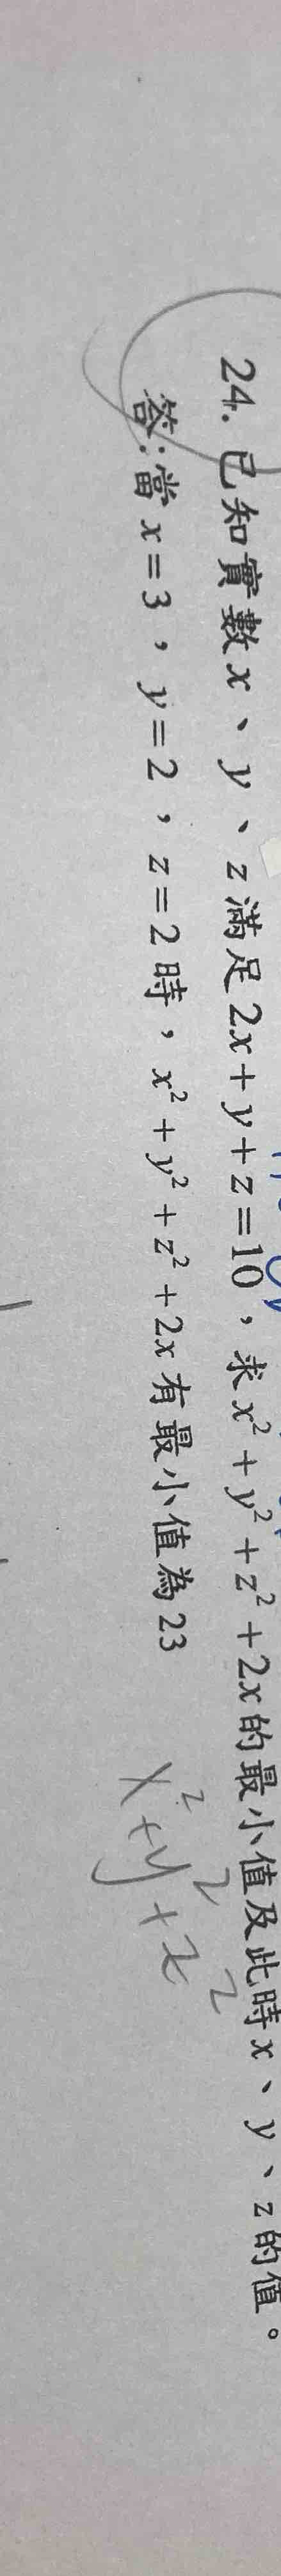 24. 已知實數x、y、z滿足2x+y+z=10,求x²+y²+z²+2x的最小值及此時x、y、z的值。
答:當x=3,y=2,z=2時,x²+y²+z²+2x有最小值為23
x²+y²+z²